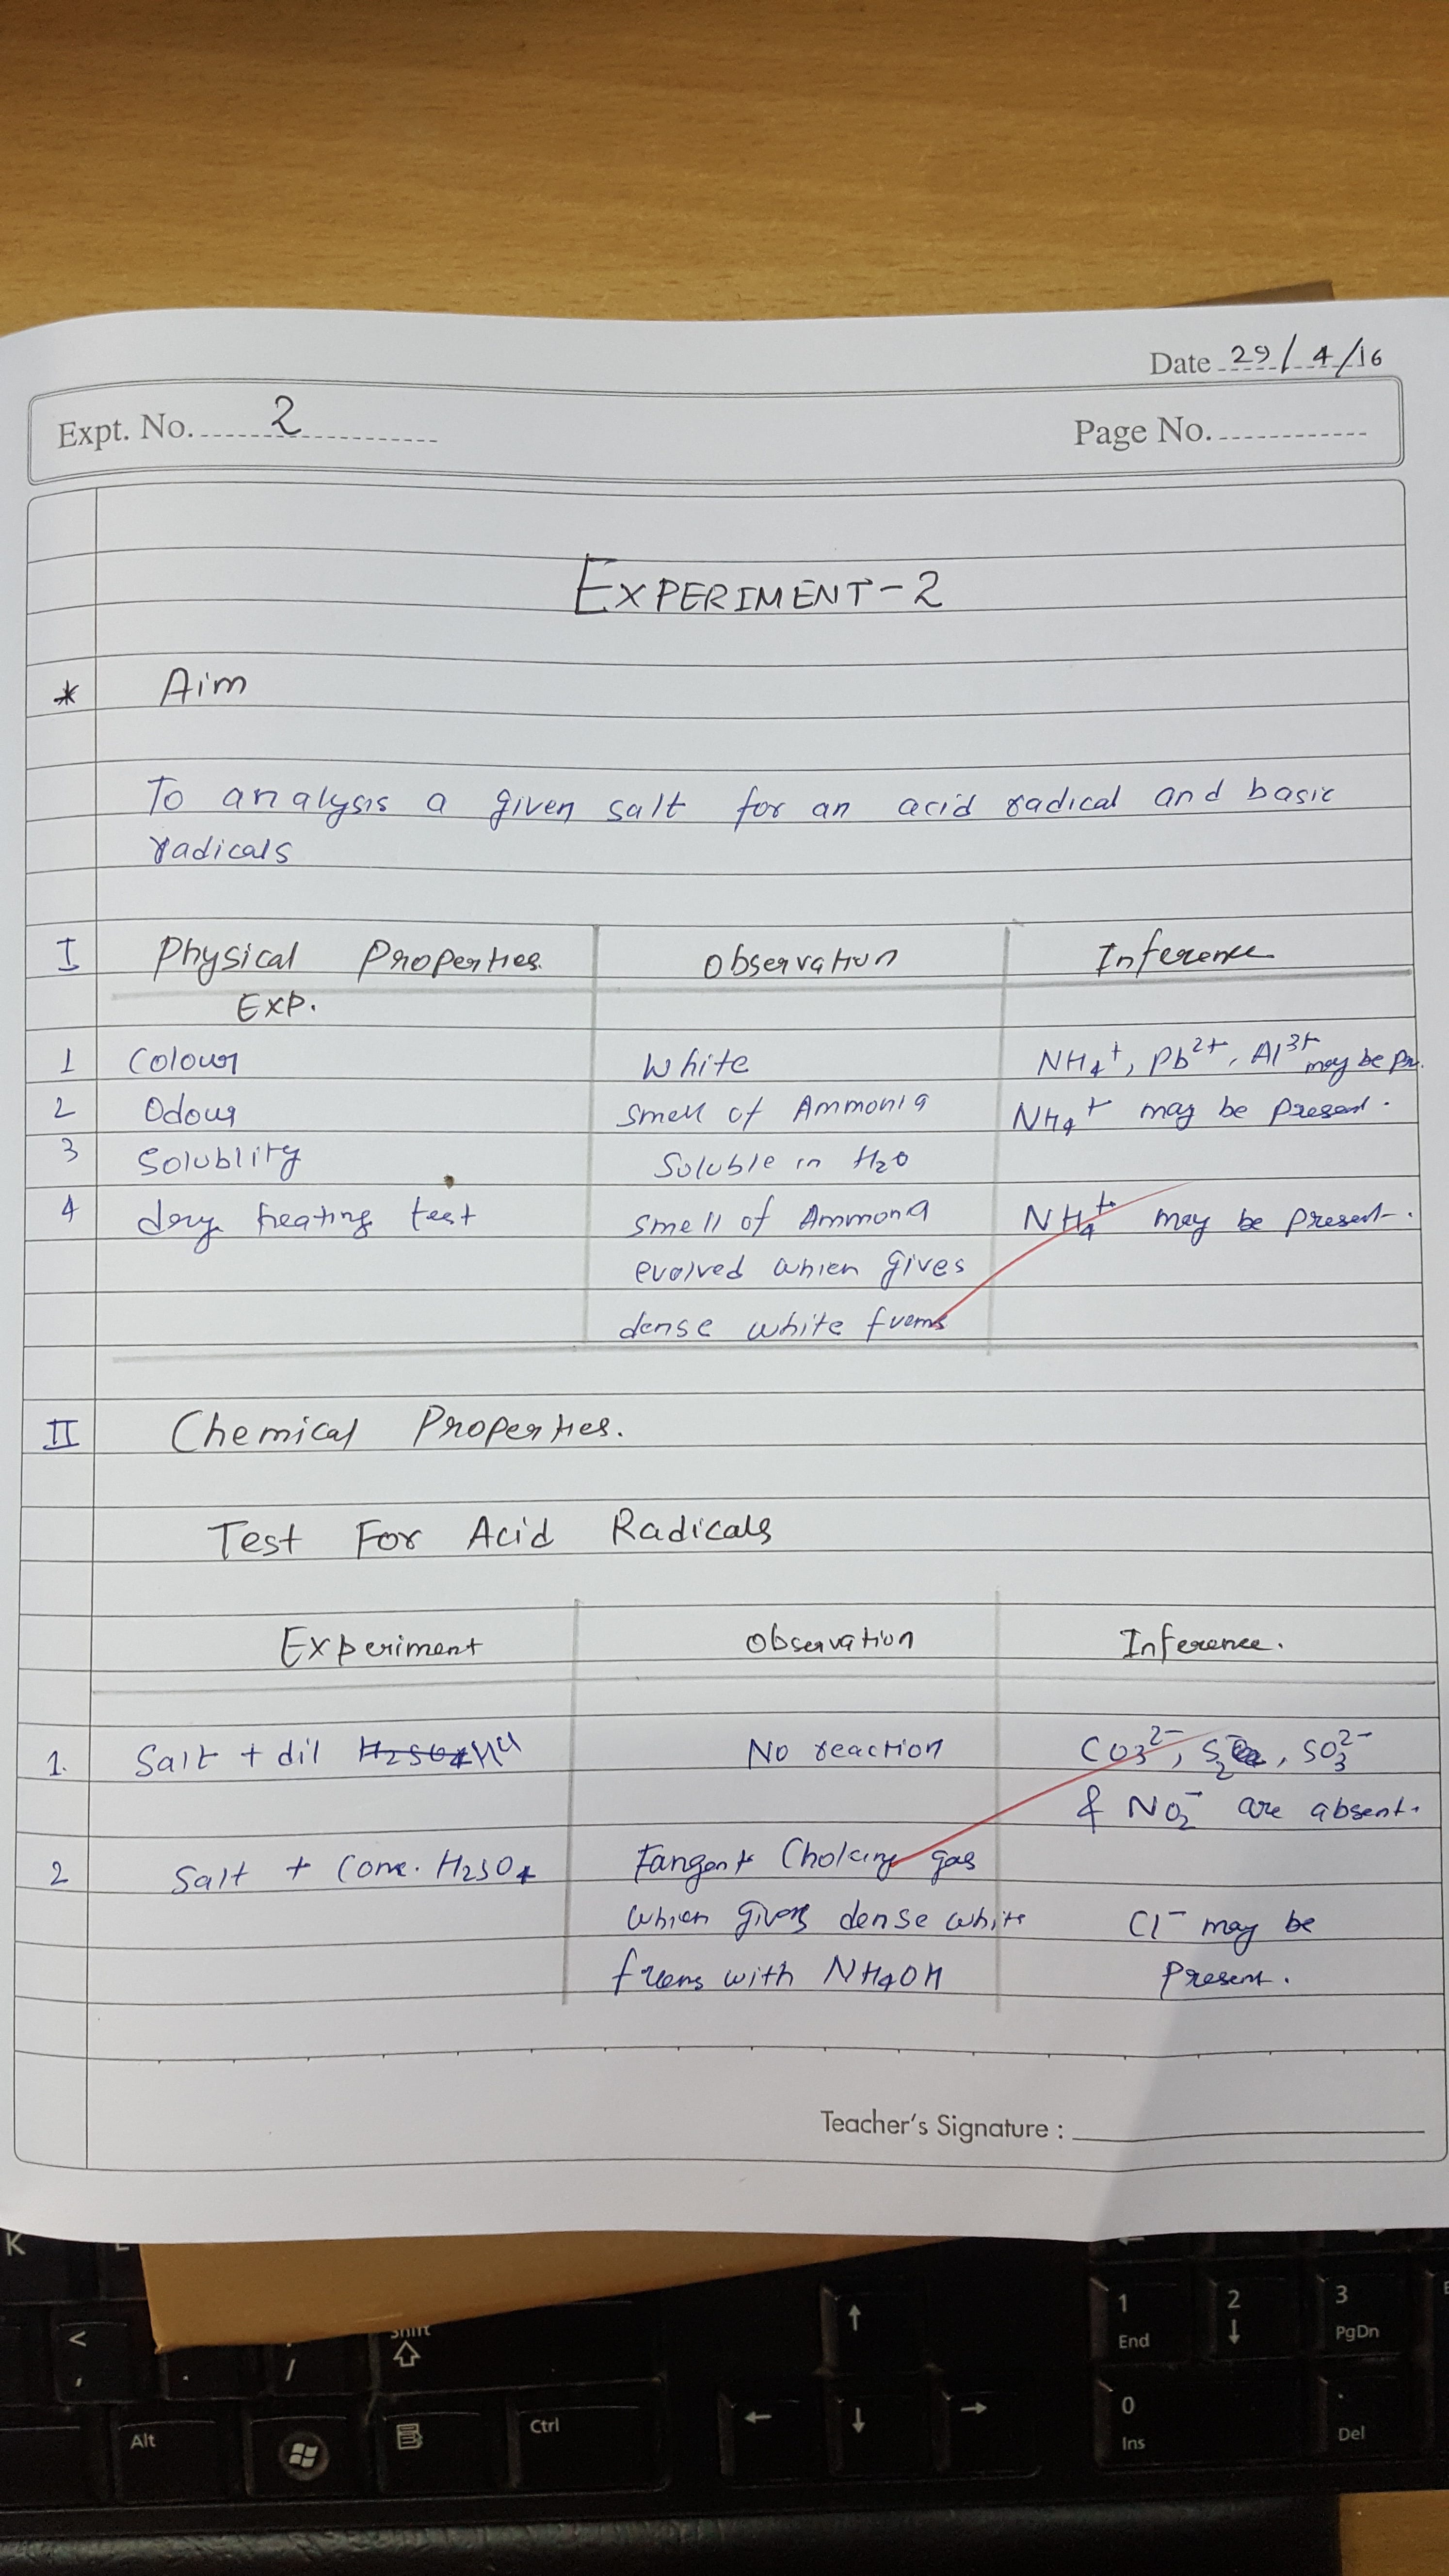 Date 29/4/16
Expt. No. 2 Page No.
EXPERIMENT-2
* Aim
To analysis a given salt for an acid radical and basic
radicals
I Physical Properties. Observation Inference
Exp.
1 Colour White NH4+, Pb2+, Al3+ may be pr.
2 Odour Smell of Ammonia NH4+ may be present.
3 Solublity Soluble in H2O
4 dry heating test Smell of Ammona NH4+ may be present.
evolved which gives
dense white fuems
II Chemical Properties.
Test For Acid Radicals
Experiment Observation Inference.
1. Salt + dil H2SO4 HCl No reaction CO3 2-, S, SO3 2-
& NO2- are absent.
2 Salt + Conc. H2SO4 Fangent Choking gas
which gives dense white Cl- may be
fuems with NH4OH present.
Teacher's Signature :
K L
< , . / Shift ↑ 1 End 2 ↓ 3 PgDn
Alt Ctrl ← ↓ → 0 Ins . Del